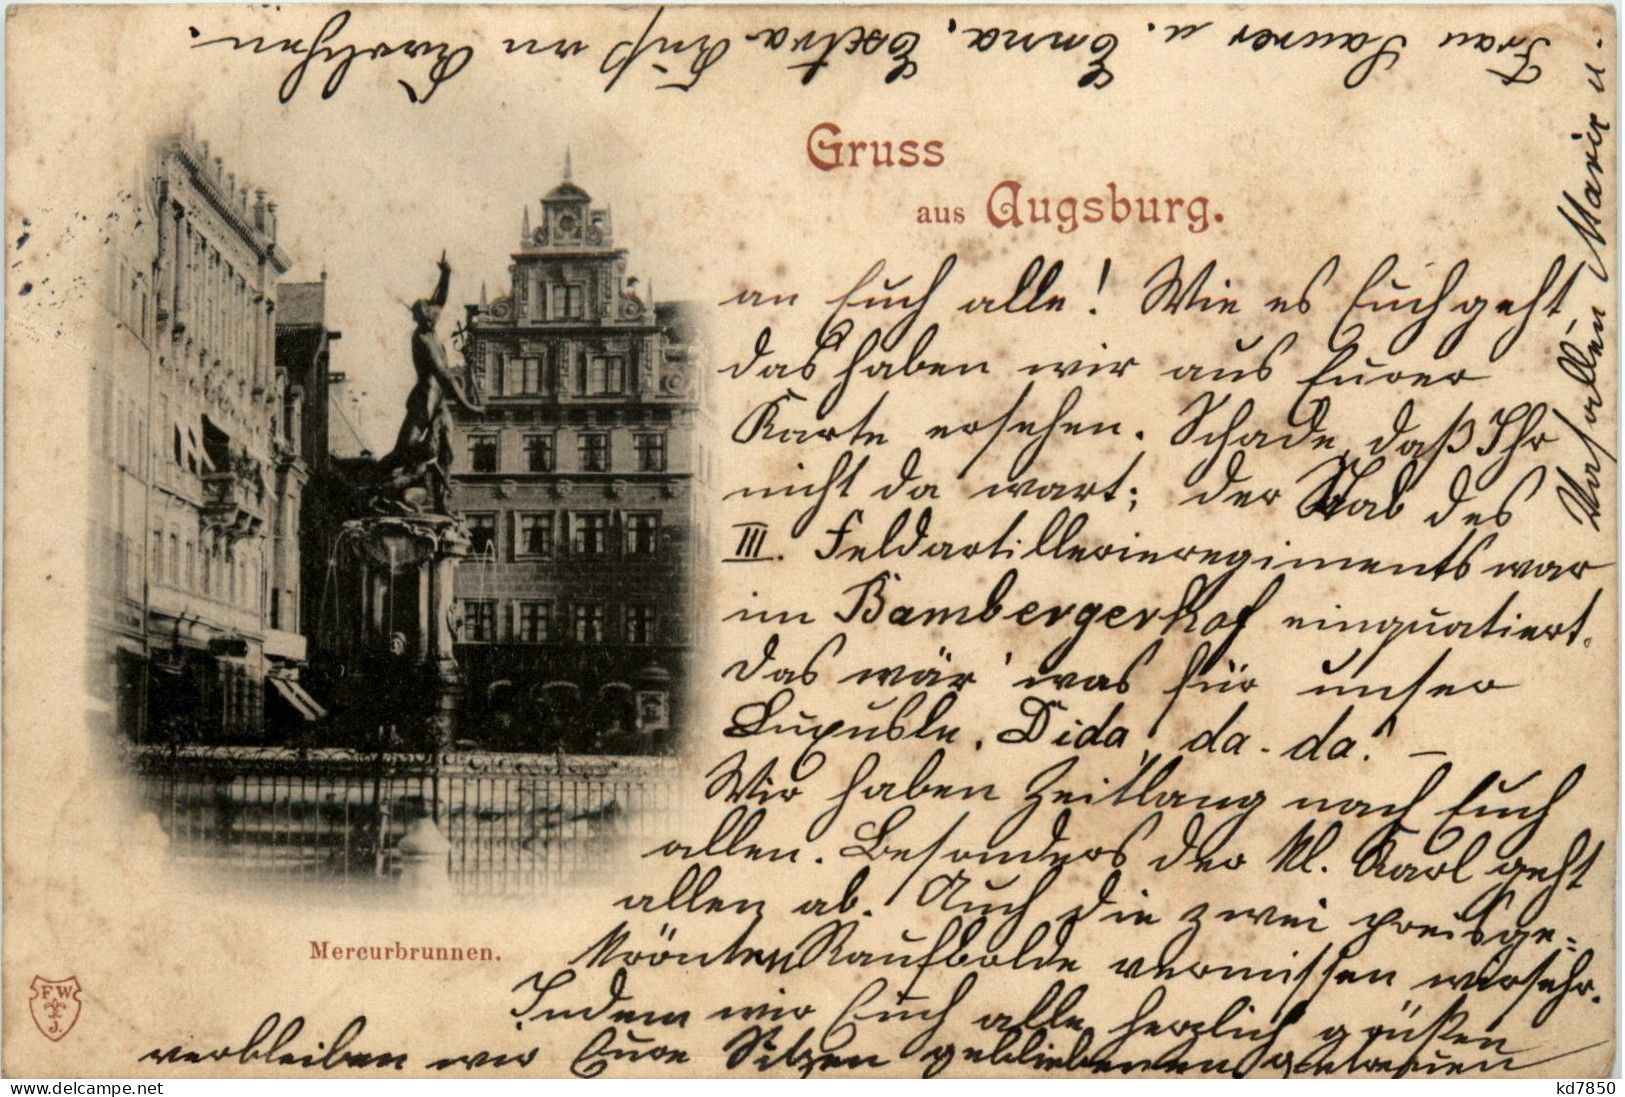 Gruss
aus Augsburg.
an Euch alle! Wie es Euch geht
das haben wir aus Eurer
Karte ersehen. Schade, daß Ihr
nicht da wart; der Stab des
III. Feldartillerieregiments war
im Bambergerhof einquatiert.
Das wär' was für unser
Dida, da-da! –
Wir haben Zeitlang nach Euch
allen. Besonders der kl. Karl geht
allen ab. Auch die zwei preisge-
krönten Raufbolde vermissen wir sehr.
Indem wir Euch alle herzlich grüßen
verbleiben wir Eure gebliebenen getreuen
Vasallen Marie u.
Frau Saurer u. Emma. Extra Kuß an
Mercurbrunnen.
F W
J.
kd7850